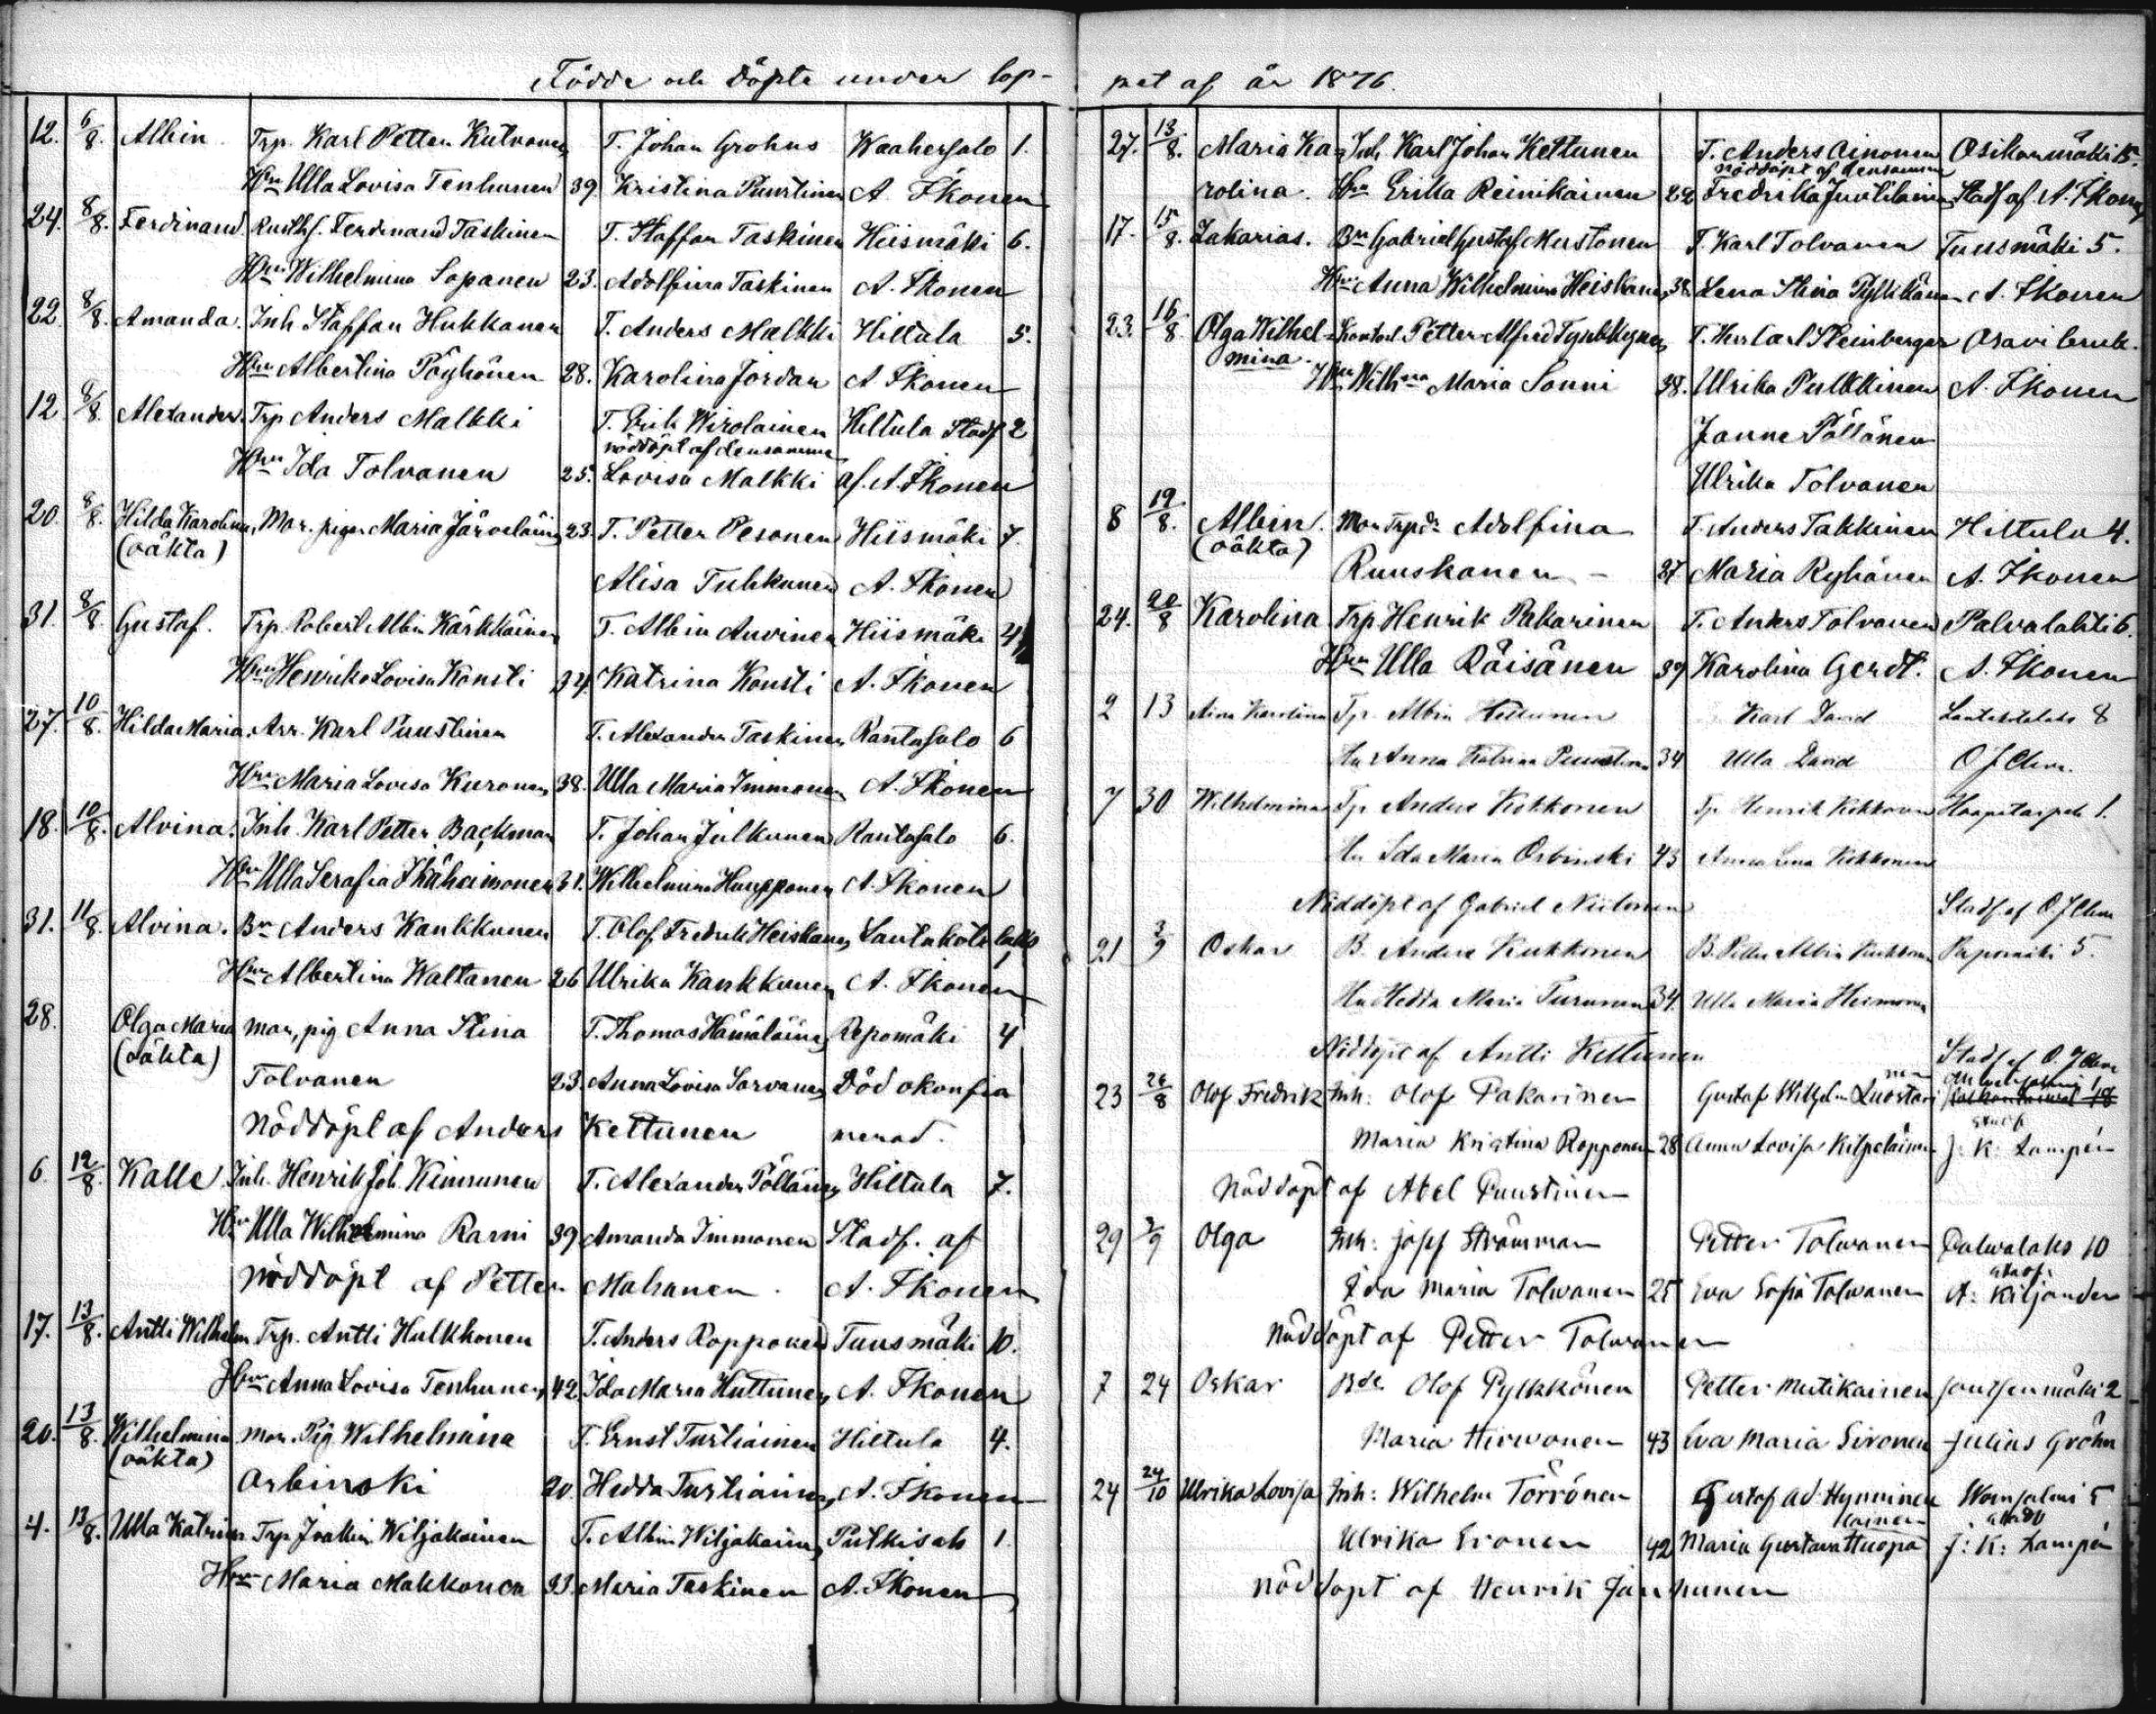 Födde och Döpte under lop-
12. 6/8. Albin. Trp. Karl Petter Kutvonen T. Johan Grohns Waahersalo 1.
Hru Ulla Lovisa Tenhunen 39. Kristina Puustinen A. Ikonen
24. 8/8. Ferdinand. Rusth. Ferdinand Taskinen T. Staffan Taskinen Hiismäki 6.
Hru Wilhelmina Sopanen 23. Adolfina Taskinen A. Ikonen
22. 8/8. Amanda. Inh Staffan Hukkanen T. Anders Malkki Hiltula 5.
Hru Albertina Pöyhönen 28. Karolina Jordan A Ikonen
12 8/8. Alexander. Trp Anders Malkki T. Erik Wirolainen Hiltula Stadf 2
nöddöpt af densamme
Hru Ida Tolvanen 25. Lovisa Malkki af. A. Ikonen
20. 8/8. Hilda Karolina, Mor. pigan Maria Järveläinen 23. T. Petter Pesonen Hiismäki 7.
(oäkta)
Alisa Tuhkunen A. Ikonen
31. 8/8. Gustaf. Trp. Robert Albin Kärkkäinen T. Albin Auvinen Hiismäki 4
Hru Henrika Lovisa Konsti 34 Katrina Konsti A. Ikonen
27. 10/8. Hilda Maria. Arr. Karl Puustinen T. Alexander Taskinen Rantasalo 6
Hru Maria Lovisa Kuronen 38. Ulla Maria Immonen A. Ikonen
18. 10/8. Alvina. Inh. Karl Petter Backman T. Johan Julkunen Rantasalo 6.
Hru Ulla Serafia Ikäheimonen 31. Wilhelmina Hupponen A. Ikonen
31. 11/8. Alvina. Bn Anders Kaukkunen T. Olof Fredrik Heiskanen Lautakotalaks
Hru Albertina Waltanen 26 Ulrika Kaukkunen A. Ikonen 1
28. Olga Maria mor, pig Anna Stina T. Thomas Hämäläinen Repomäki 4
(oäkta)
Tolvanen 23. Anna Lovisa Sorvanen Död okonfir
Nöddöpt af Anders Kettunen merad.
6. 12/8. Kalle Inh. Henrik Joh. Kinnunen T. Alexander Pöllänen Hiltula 7.
Hru Ulla Wilhelmina Rarni 39 Amanda Immonen Stadf. af
nöddöpt af Petter Mahanen. A. Ikonen
17. 13/8. Antti Wilhelm Trp. Antti Hulkkonen T. Anders Ropponen Tuusmäki 10.
Hru Anna Lovisa Tenhunen, 42. Ida Maria Huttunen, A. Ikonen
20. 13/8. Wilhelmina mor. Pig Wilhelmina T. Ernst Turtiainen Hiltula 4.
(oäkta)
Orbinski 20. Hedda Turtiainen, A. Ikonen
4. 13/8. Ulla Katrina Trp Joakim Wiljakainen T. Albin Wiljakainen Pulkisah 1.
Hru Maria Makkonen 33. Maria Taskinen A. Ikonen
pet af år 1876.
27. 13/8. Maria Ka- Inh. Karl Johan Kettunen T. Anders Ainonen Osikonmäki 15.
nöddöpt af densamme
rolina. Hru Erika Reinikainen 22 Fredrika Juutilainen Stadf af A. Ikonen
17. 15/8. Zakarias. Bn Gabriel Gustaf Mustonen T. Karl Tolvanen Tuusmäki 5.
Hru Anna Wilhelmina Heiskanen, 38. Lena Stina Pylkkänen A. Ikonen
23. 16/8 Olga Wilhel- Petter Alfred T. Herr Carl Steinberger Oravi bruk.
mina.
Hru Wilhna Maria Sonni 38. Ulrika Pulkkinen A. Ikonen
Janne Pöllänen
Ulrika Tolvanen
8 19/8. Albin. Mor Trpdr Adolfina T. Anders Takkinen Hiltula 4.
(oäkta)
Ruuskanen - 27 Maria Ryhänen A. Ikonen
24. 20/8 Karolina Trp Henrik Pakarinen T. Anders Tolvanen Palvalahti 6.
Hru Ulla Räisänen 39 Karolina Gerdt. A. Ikonen
2 13 Aina Karolina Tp. Albin Hettunen Karl David Lautakotalaks 8
Hu Anna Katrina Puustinen 34 Ulla David O J Clever
7 30 Wilhelmina Tp Anders Kokkonen Tp Henrik Kokkonen Haapataipale 1.
Hu Ida Maria Orbinski 43 Anna Lena Kokkonen
Nöddöpt af Gabriel Niilonen Stadf af O. J Cleve
21 3/9 Oskar B. Anders Kukkonen B. Petter Albin Kukkonen Repomäki 5.
Hu Hedda Maria Turunen 34. Ulla Maria Heimonen
Nöddöpt af Antti Kettunen Stadf af O. J Cleve
23 26/8 Olof Fredrik Inh: Olof Pakarinen Gustaf Wilhelm Luostari
nen
Maria Kristina Ropponen 28 Anna Lovisa Kilpeläinen J: K: Lampén
stadf
Nöddöpt af Abel Puustinen
29 3/9 Olga Inh: Josef Strömman Petter Tolwanen Palwalaks 10
stadf:
Ida Maria Tolwanen 25 Eva Sofia Tolwanen A: Kiljander
Nöddöpt af Petter Tolwanen
7 24 Oskar Bde Olof Pylkkönen Petter Mutikainen Joutsenmäki 2
Maria Hirwonen 43 Eva Maria Sironen Julius Gröhn
24 24/10 Ulrika Lovisa Inh: Wilhelm Törrönen Gustaf Ad. Hynninen Womsalmi 5
lainen stadf
Ulrika Eronen 42 Maria Gustava Huopa J: K: Lampén
nöddöpt af Henrik Janhunen